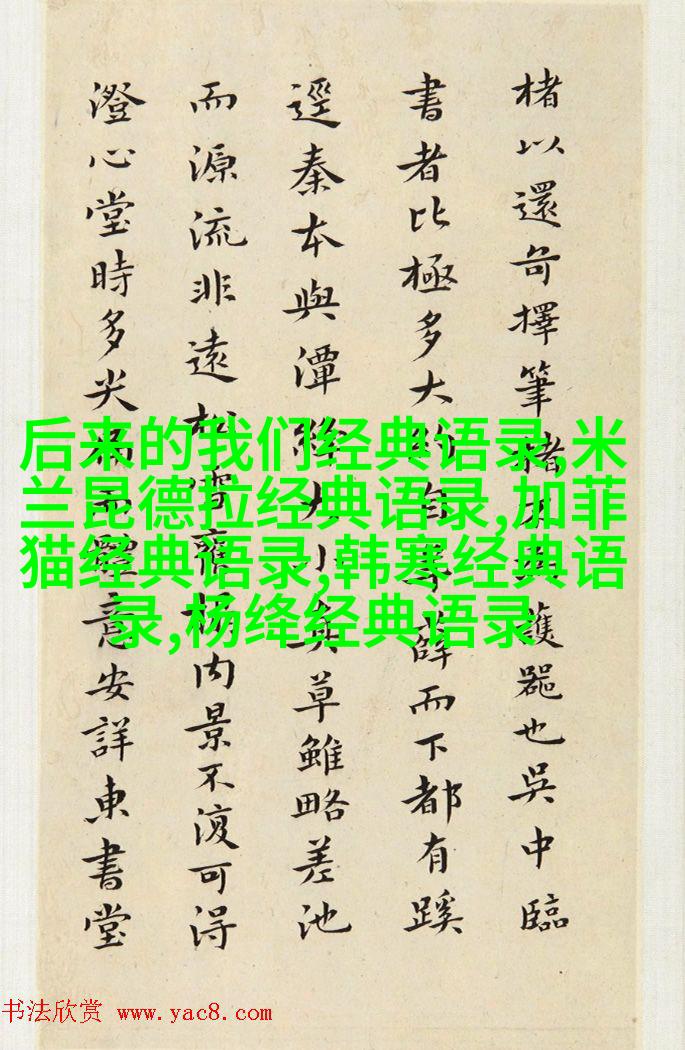 楮以還奇擇筆楮
護器也吳中臨
書者比極多大
薛而下都有蹊
逕秦本與潭絳大小
草雖略差池
而源流非遠松雪
楊內景不復可得
澄心堂時多尖
意安詳東書堂
后来的我们经典语录,米
兰昆德拉经典语录,加菲
猫经典语录,韩寒经典语
录,杨绛经典语录
书法欣赏 www.yac8.com